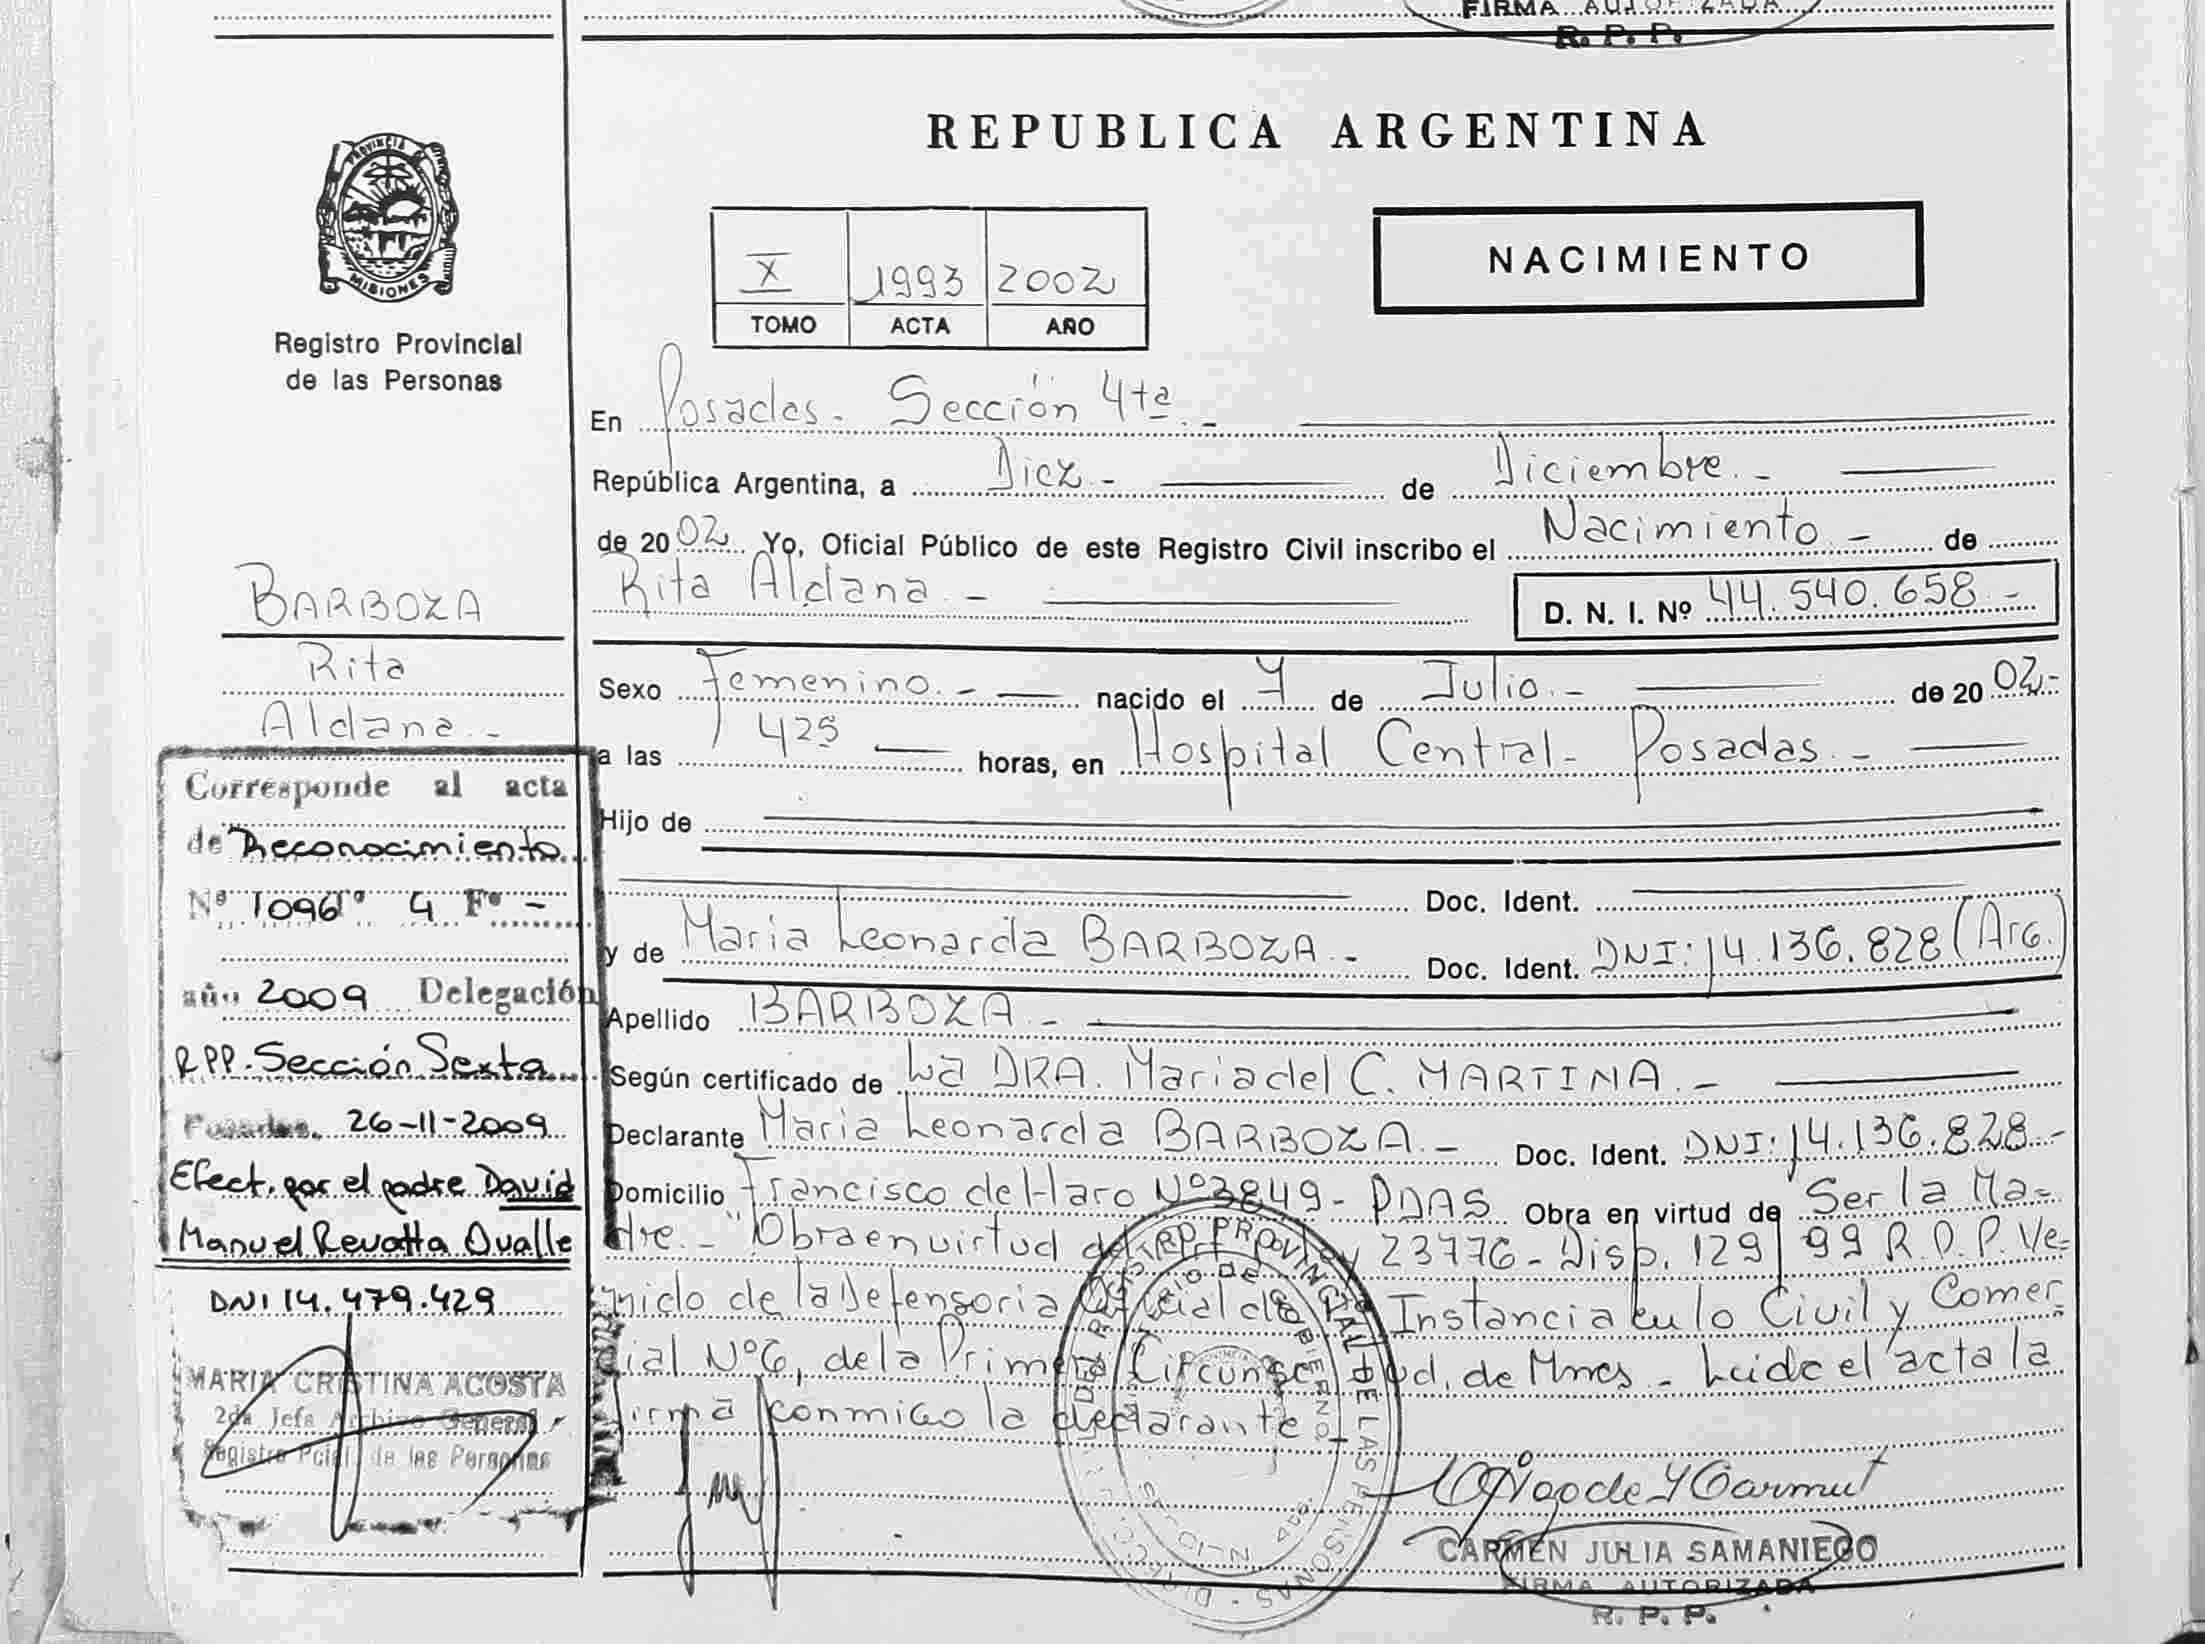 FIRMA AUTORIZADA
R. P. P.
REPUBLICA ARGENTINA
PROVINCIA DE
MISIONES
Registro Provincial
de las Personas
X 1993 2002
TOMO ACTA AÑO
NACIMIENTO
En Posadas.- Sección 4ta.-
República Argentina, a Diez.- de Diciembre.-
de 2002 Yo, Oficial Público de este Registro Civil inscribo el Nacimiento.- de
Rita Aldana.- D. N. I. Nº 44.540.658.-
Sexo Femenino.- nacido el 7 de Julio.- de 2002.-
a las 425 horas, en Hospital Central- Posadas.-
Hijo de
Doc. Ident.
y de Maria Leonarda BARBOZA.- Doc. Ident. DNI: 14.136.828 (Arg.)
Apellido BARBOZA.-
Según certificado de La DRA. Maria del C. MARTINA.-
Declarante Maria Leonarda BARBOZA.- Doc. Ident. DNI: 14.136.828.-
Domicilio Francisco de Haro Nº 3849- PDAS Obra en virtud de Ser la Ma-
dre.- "Obra en virtud 23776- Disp. 129/99 R.P.P. Ve-
nido de la Defensoria Oficial de Instancia en lo Civil y Comer-
cial Nº 6, de la Primera Circunsc. Jud. de Mnes - Leida el acta la
firma conmigo la declarante.-
CARMEN JULIA SAMANIEGO
FIRMA AUTORIZADA
R. P. P.
BARBOZA
Rita
Aldana.-
Corresponde al acta
de Reconocimiento
Nº 1096 Tº 4 Fº -
año 2009 Delegación
RPP. Sección Sexta
Posadas, 26-11-2009
Efect. por el padre David
Manuel Revatta Ovalle
DNI 14.479.429
MARIA CRISTINA ACOSTA
2da Jefa Archivo General
Registro Pcial. de las Personas